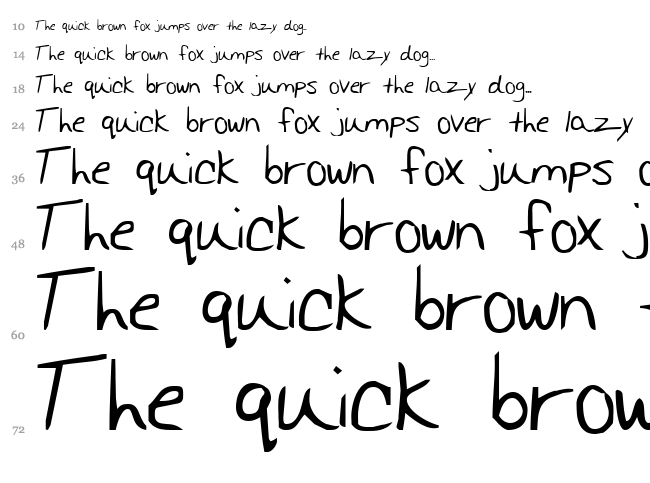 10 The quick brown fox jumps over the lazy dog...
14 The quick brown fox jumps over the lazy dog...
18 The quick brown fox jumps over the lazy dog...
24 The quick brown fox jumps over the lazy
36 The quick brown fox jumps o
48 The quick brown fox j
60 The quick brown
72 The quick brow